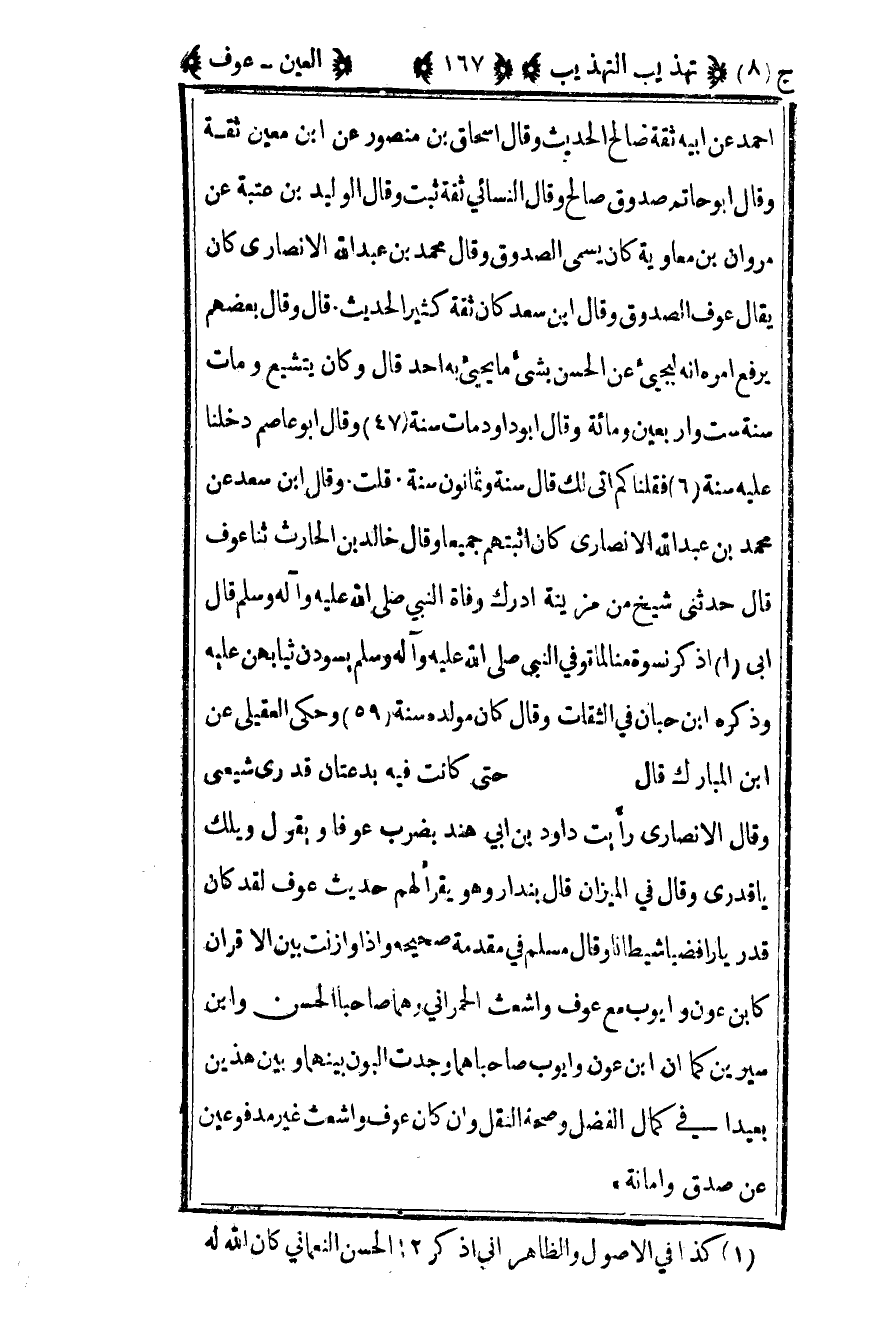 ج (٨) ﴿ تهذيب التهذيب ﴾ ﴿ ١٦٧ ﴾ ﴿ العين - عوف ﴾
احمد عن ابيه ثقة صالح الحديث وقال اسحاق بن منصور عن ابن معين ثقة
وقال ابوحاتم صدوق صالح وقال النسائي ثقة ثبت وقال الوليد بن عتبة عن
مروان بن معاوية كان يسمى الصدوق وقال محمد بن عبدالله الانصارى كان
يقال عوف الصدوق وقال ابن سعد كان ثقة كثير الحديث . قال وقال بعضهم
يرفع امره انه ليجيئ عن الحسن بشئ ما يجيئ به احد قال وكان يتشيع ومات
سنة ست واربعين ومائة وقال ابوداود مات سنة (٤٧) وقال ابوعاصم دخلنا
عليه سنة (٦) فقلنا كم اتى لك قال ستة وثمانون سنة . قلت . وقال ابن سعد عن
محمد بن عبدالله الانصارى كان اثبتهم جميعا وقال خالد بن الحارث ثنا عوف
قال حدثنى شيخ من مزينة ادرك وفاة النبي صلى الله عليه وآله وسلم قال
انى (١) اذكر نسوة منا لما توفي النبى صلى الله عليه وآله وسلم يسودن ثيابهن عليه
وذكره ابن حبان في الثقات وقال كان مولده سنة (٥٩) وحكى العقيلى عن
ابن المبارك قال حتى كانت فيه بدعتان قدرى شيعى
وقال الانصارى رأيت داود بن ابي هند يضرب عوفا ويقول ويلك
ياقدرى وقال في الميزان قال بندار وهو يقرأ لهم حديث عوف لقد كان
قدريا رافضيا شيطانا وقال مسلم في مقدمة صحيحه واذا وازنت بين الاقران
كابن عون وايوب مع عوف واشعث الحمراني وهما صاحبا الحسن وابن
سيرين كما ان ابن عون وايوب صاحباهما وجدت البون بينهما وبين هذين
بعيدا في كمال الفضل وصحة النقل وان كان عوف واشعث غير مدفوعين
عن صدق وامانة .
(١) كذا في الاصول والظاهر انى اذكر ١٢ الحسن النعماني كان الله له